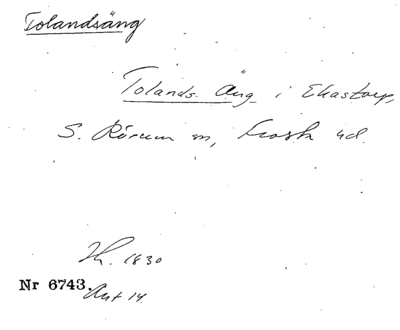 Tolandsäng
Tolands Äng i Ekastorp,
S. Rörum sn, Frosta hd.
Th. 1830
Nr 6743.
Akt 14.